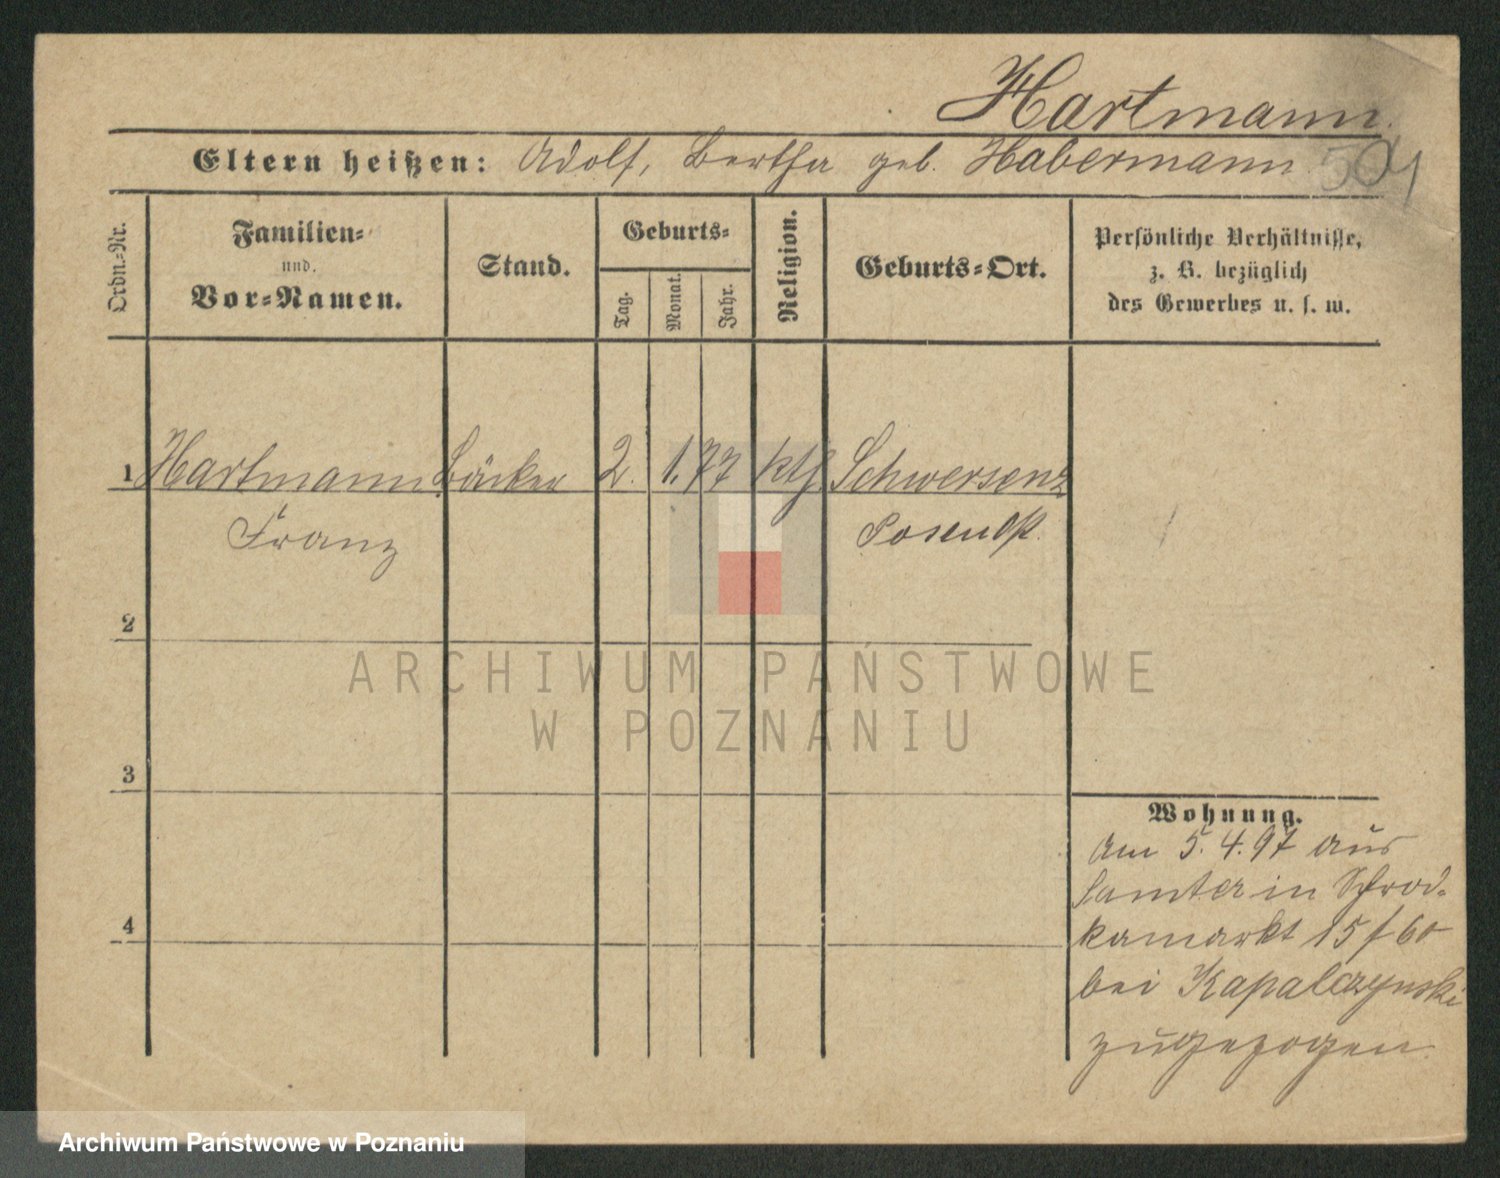 Hartmann.
Eltern heißen: Adolf, Bertha geb. Habermann.
Ordn.-Nr.
Familien-
und
Vor-Namen.
Stand.
Geburts-
Tag.
Monat.
Jahr.
Religion.
Geburts-Ort.
Persönliche Verhältnisse,
z. B. bezüglich
des Gewerbes u. s. w.
1 Hartmann Bäcker 2. 1. 77 kth. Schwersenz
Franz Posen Ost.
2
ARCHIWUM PAŃSTWOWE
W POZNANIU
3
Wohnung.
Am 5. 4. 97 aus
Samter in Schrod-
4
kamarkt 15 / 60
bei Kapalczynski
zugezogen.
Archiwum Państwowe w Poznaniu